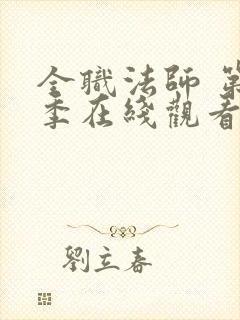 全職法師 第
季在綫觀看
劉立春